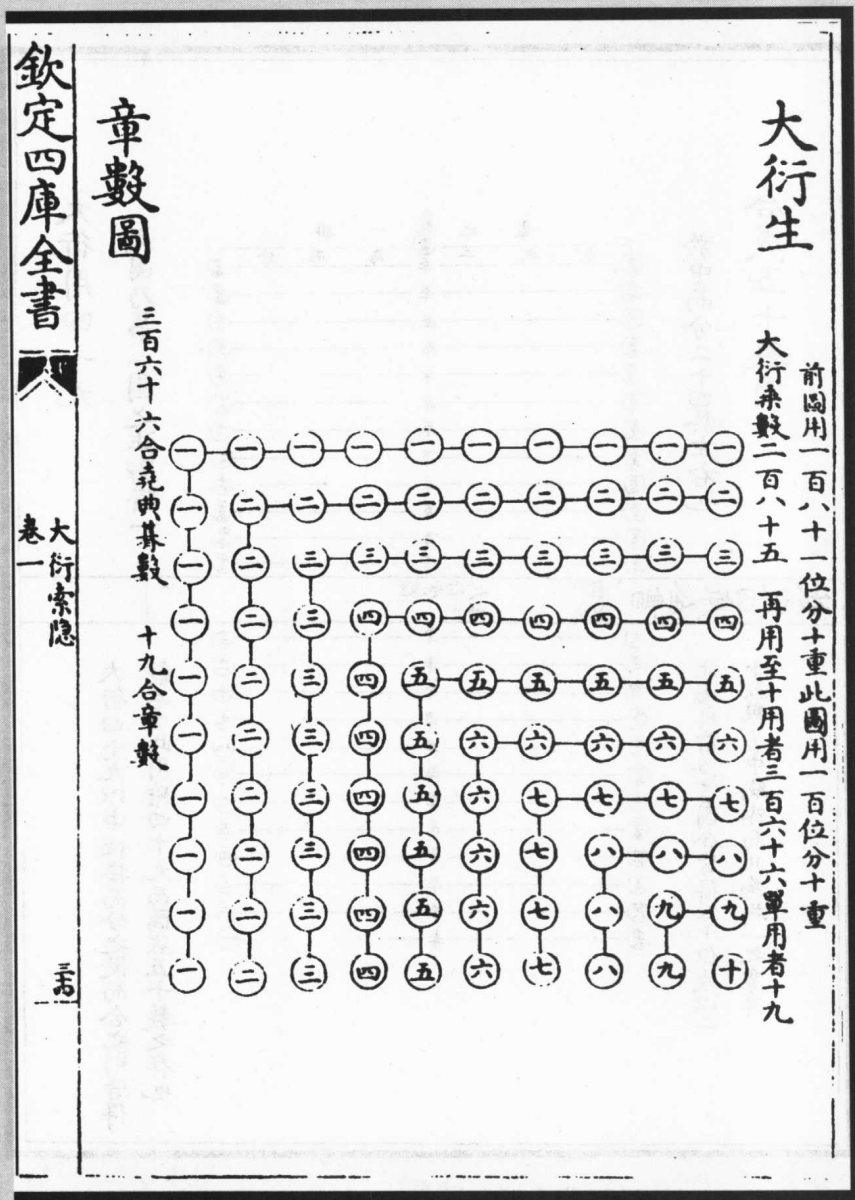 大衍生
前圖用一百八十一位分十重此圖用一百位分十重
大衍乗數二百八十五 再用至十用者三百六十六單用者十九
一一一一一一一一一一
一二二二二二二二二二
一二三三三三三三三三
一二三四四四四四四四
一二三四五五五五五五
一二三四五六六六六六
一二三四五六七七七七
一二三四五六七八八八
一二三四五六七八九九
一二三四五六七八九十
章數圖
三百六十六合堯典朞數 十九合章數
欽定四庫全書
大衍索隱
卷一